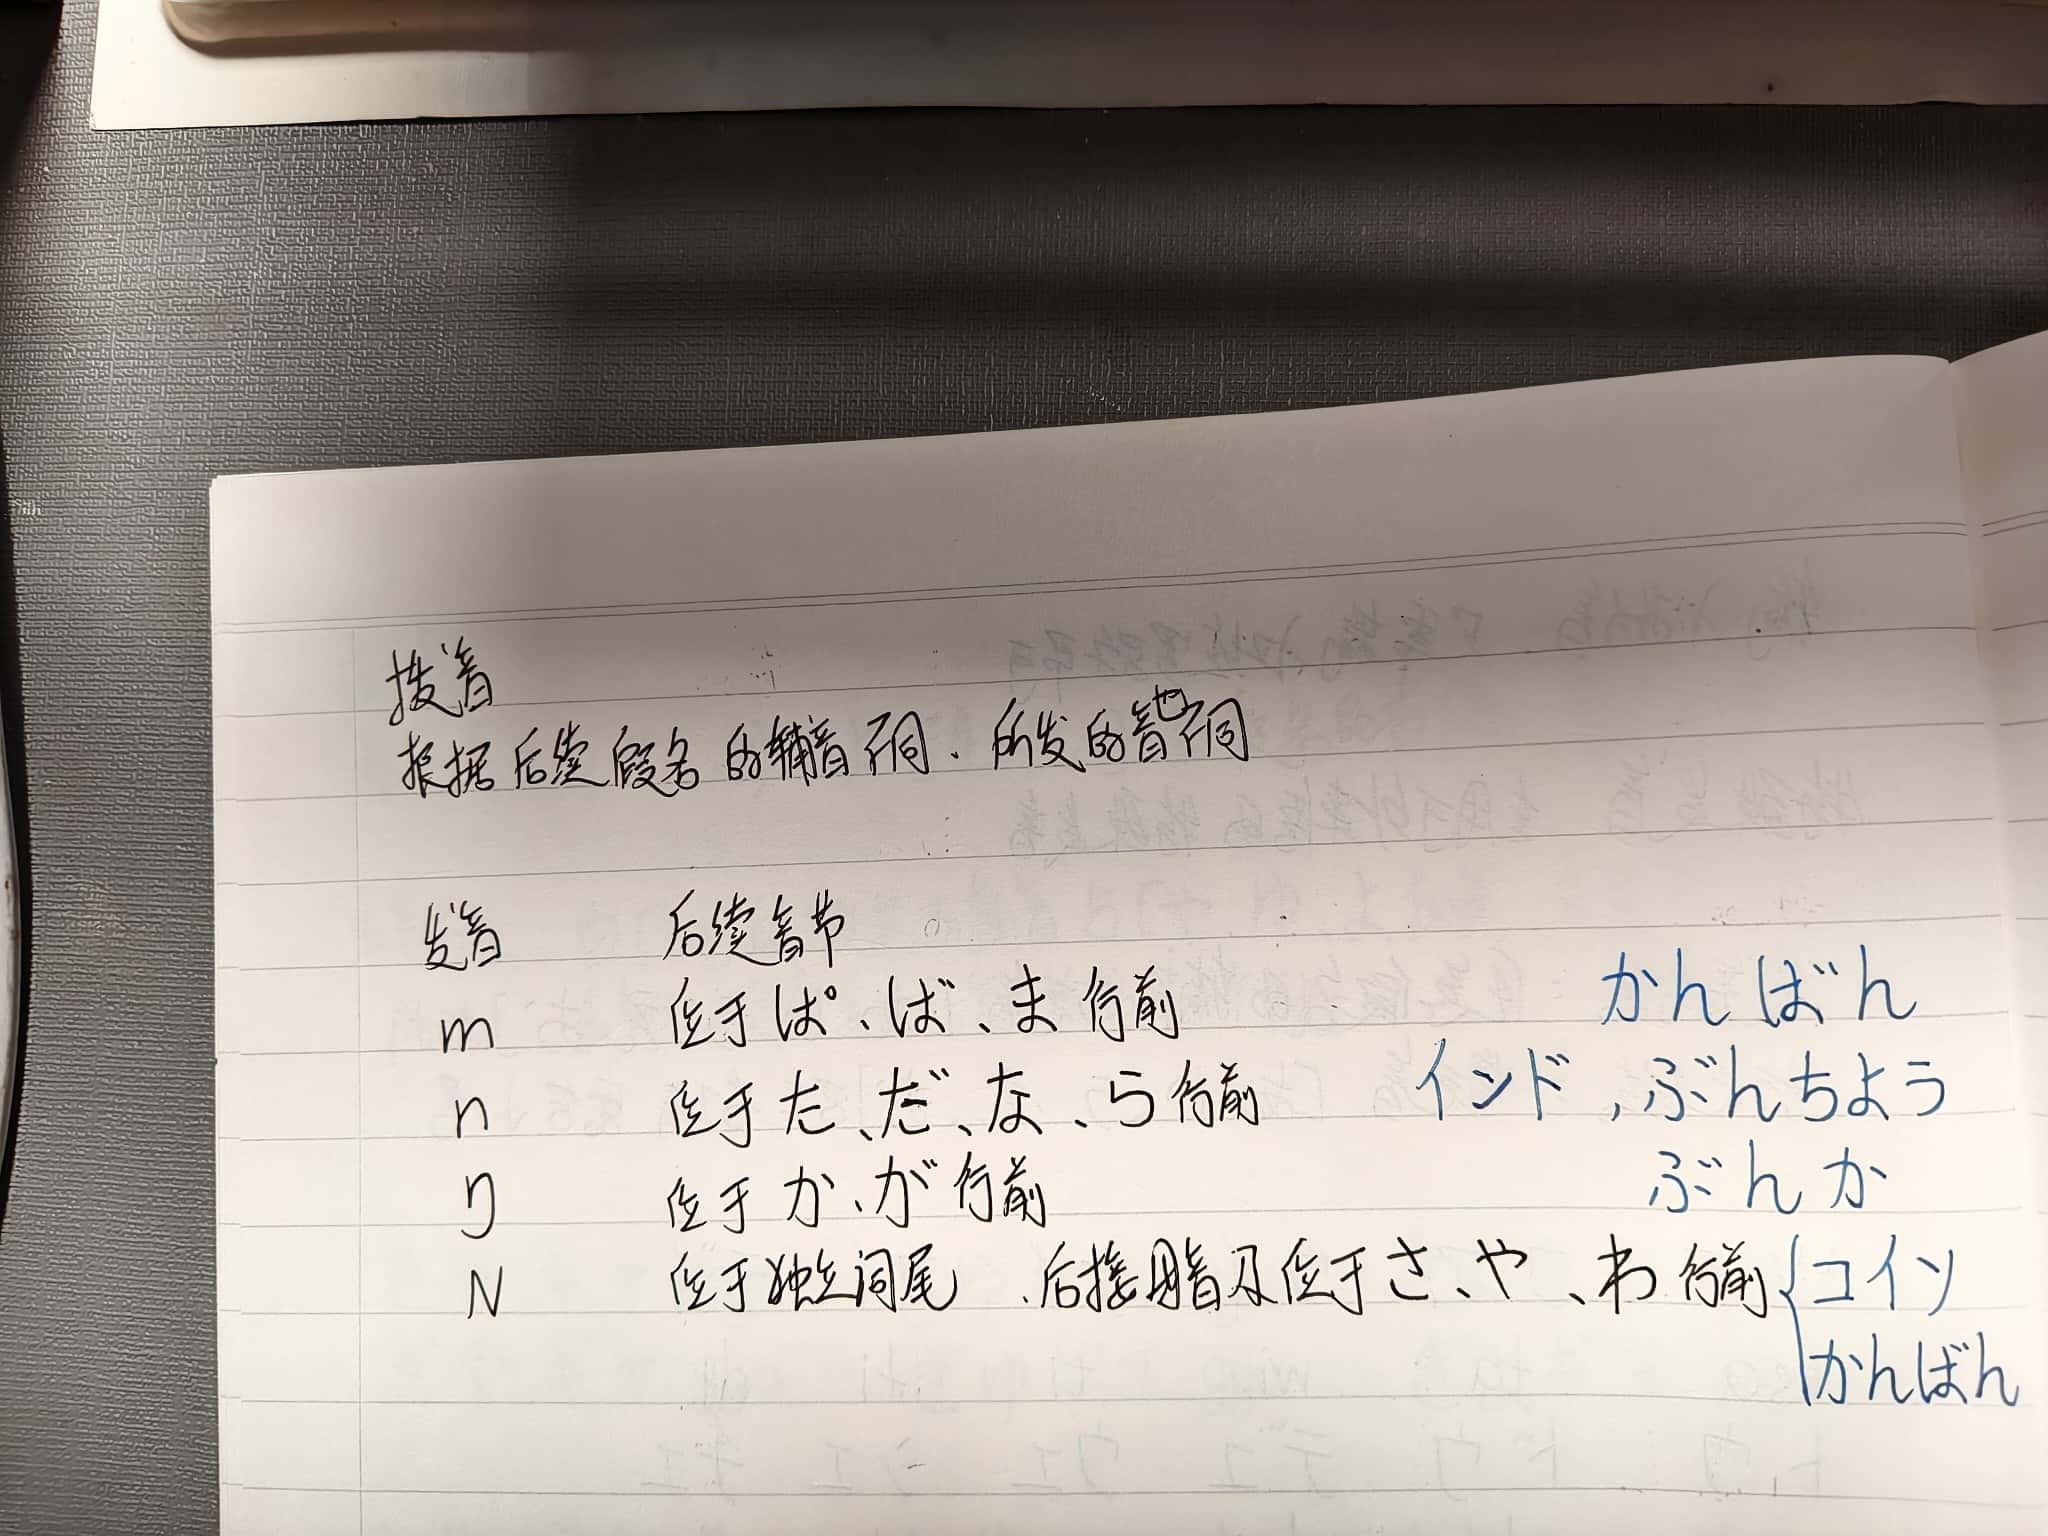 拨音
根据后续假名的辅音不同.所发的音也不同
发音 后续音节
m 位于ぱ、ば、ま行前 かんばん
n 位于た、だ、な、ら行前 インド,ぶんちよう
ŋ 位于か、が行前 ぶんか
N 位于独立词尾、后接母音及位于さ、や、わ行前 コイン
かんばん